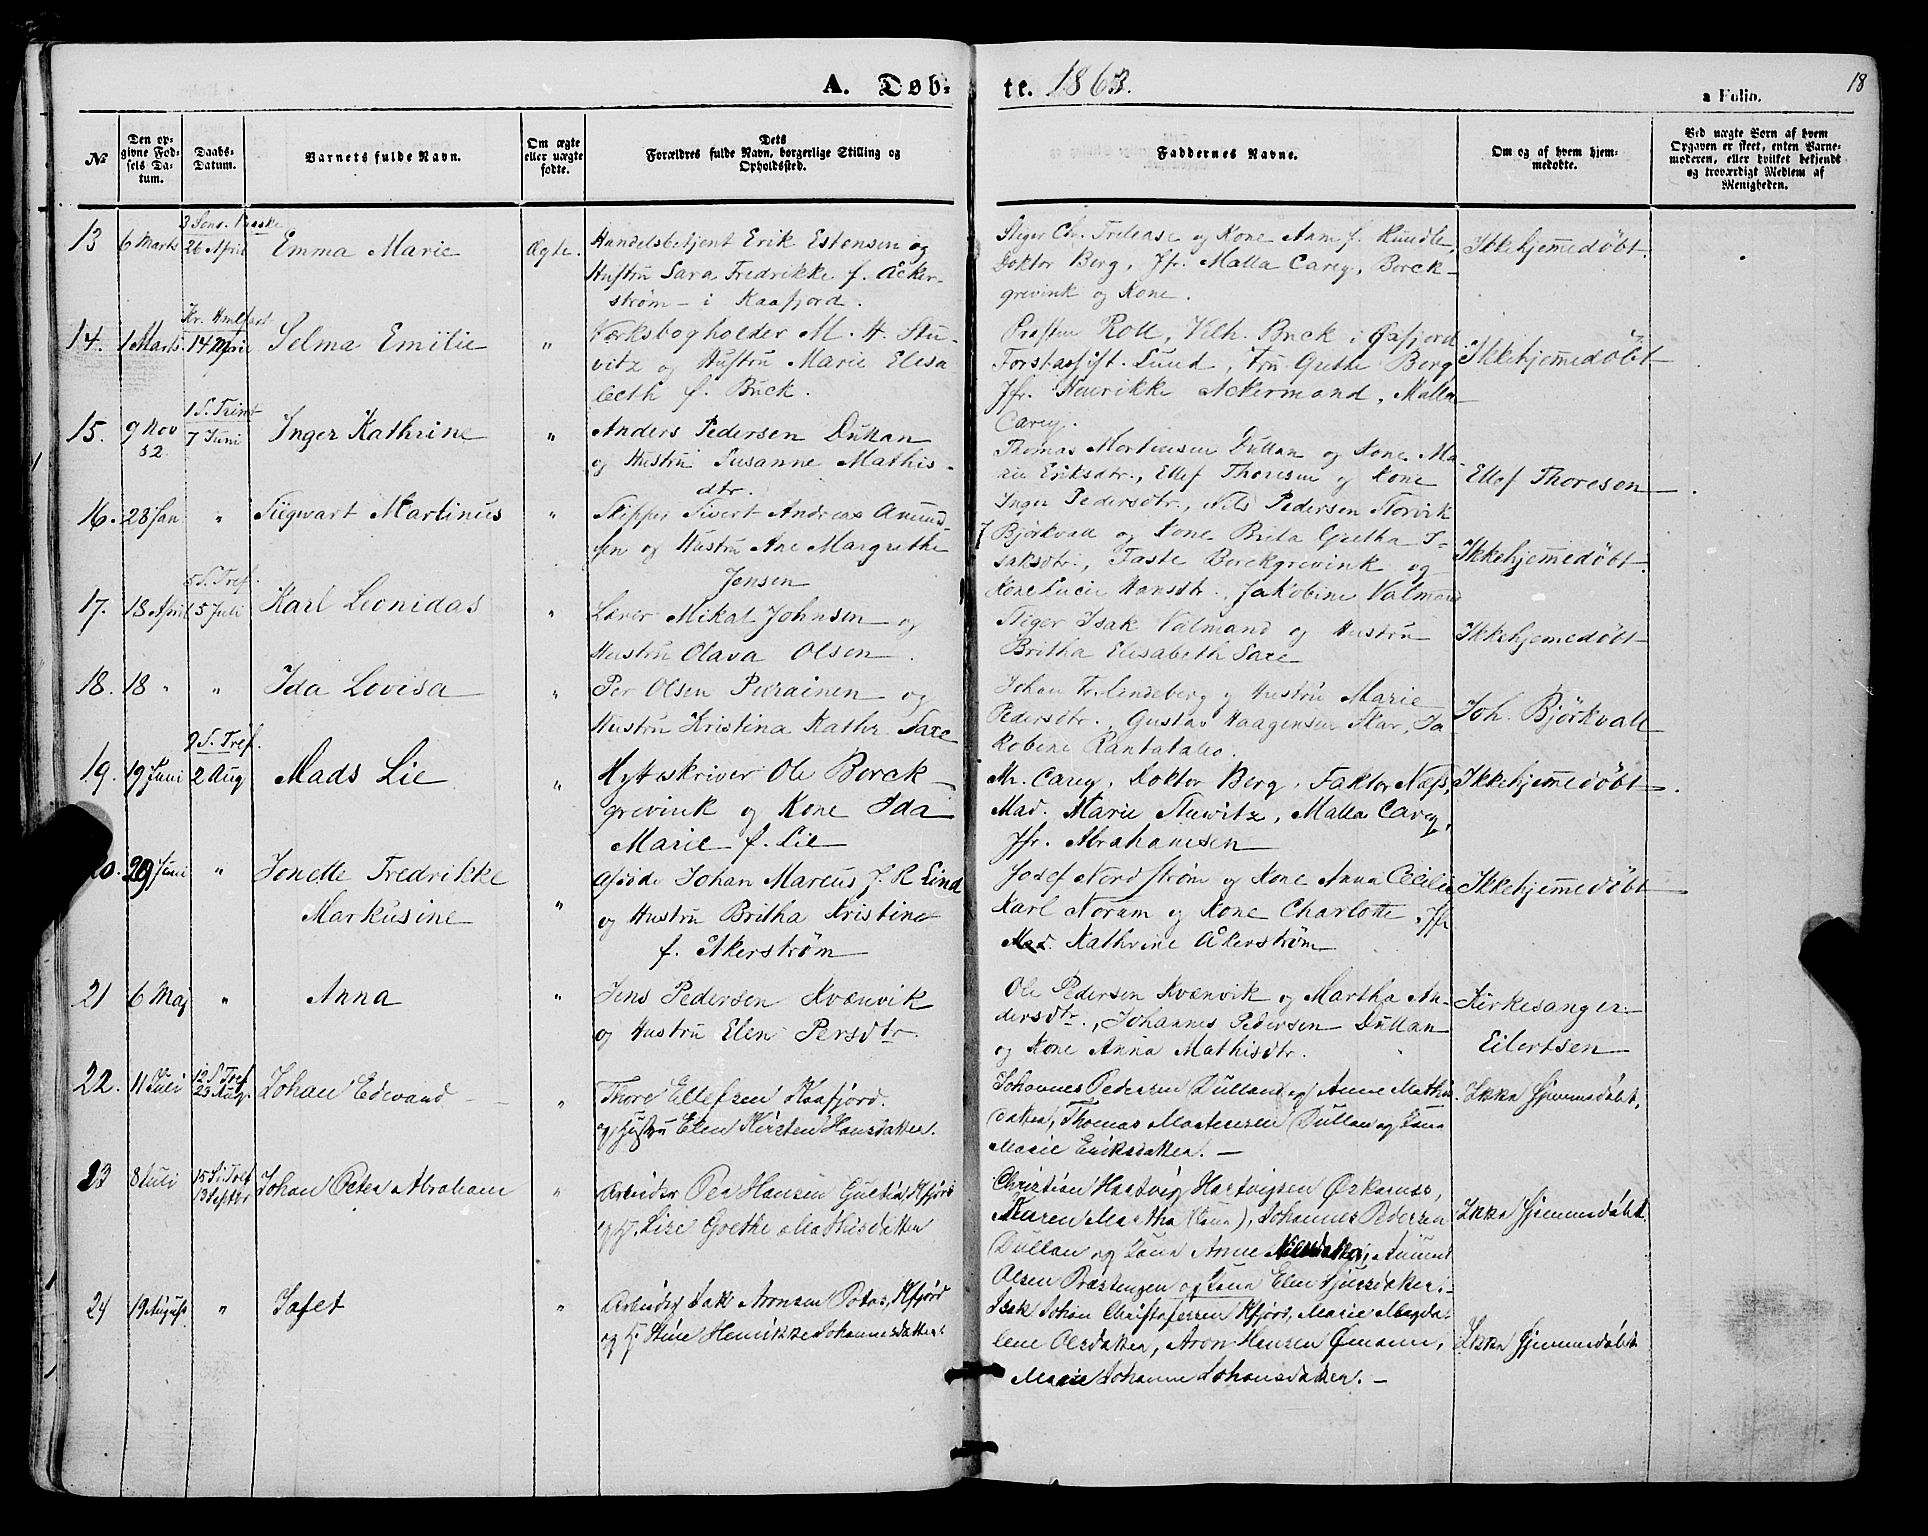 A. Døb-
te. 1863.
a Folio.
18
No
Den op-
givne Fød-
sels Da-
tum.
Daabs-
Datum.
Barnets fulde Navn.
Om ægte
eller uægte
fødte.
Dets
Forældres fulde Navn, borgerlige Stilling og
Opholdssted.
Faddernes Navne.
Om og af hvem hjem-
medøbte.
Ved uægte Born af hvem
Opgaven er skeet, enten Barne-
moderen, eller hvilket bekjendt
og troværdigt Medlem af
Menigheden.
13
6 Marts
3 Sønd. Paaske
26 April
Emma Marie
Ægte.
Handelsbetjent Erik Estensen og
Hustru Sara Fredrikke f. Åcker-
strøm - i Kaafjord.
Stiger Ch. Trelease og Kone Ann f. Rundle,
Doktor Berg, Jfr. Malla Carey, Borck-
grevink og Kone.
Ikkehjemmedøbt.
14.
1 Marts
Kr. Himlfart
14
Selma Emilie
"
Værksbogholder M. H. Stu-
vitz og Hustru Marie Elisa
beth f. Buck.
Præsten Roll, Vilh. Buck i Øxfjord
Forstassist. Lund, Fru Grethe Berg
Jfr. Henrikke Ackermand, Malla
Carey.
Ikkehjemmedøbt
15.
9 Nov
52
1 S. Trinit
7 Juni
Inger Kathrine
"
Anders Pedersen Dullan
og Hustru Susanne Mathis-
dtr.
Thomas Mortensen Dullan og Kone Ma
rie Eriksdtr., Ellef Thoresen og Kone
Inger Pedersdtr., Nils Pedersen Storvik
Ellef Thoresen
16.
28 Jan
"
Sigwart Martinus
"
Skipper Sivert Andreas Amund-
sen og Hustru Ane Margrethe
Jensen
J Björkvall og Kone Brita Gretha I-
saksdtr., Faste Borckgrevink og
Kone Lucie Hansdtr., Jakobine Valmand
Ikkehjemmedøbt.
17.
18 April
5 S. Tref.
5 Juli
Karl Leonidas
"
Lærer Mikal Johnsen og
Hustru Olava Olsen.
Stiger Isak Valmand og Hustru
Britha Elisabeth Saxe
Ikkehjemmedøbt
18.
18 "
"
Ida Lovisa
"
Per Olsen Puirainen og
Hustru Kristina Kathr. Saxe
Johan Fr. Lindeberg og Hustru Marie
Pedersdtr., Gustav Haagensen Skar, Ja
kobine Rantatalo.
Joh. Björkvall
19.
19 Juni
9 S. Tref.
2 Aug
Mads Lie
"
Hytteskriver Ole Borck-
grevink og Kone Ida
Marie f. Lie
Mr. Carey, Doktor Berg, Faktor Næss,
Mad. Marie Stuwitz, Malla Carey,
Jfr. Abrahamsen
Ikkehjemmedøbt.
20.
29 Juni
"
Jonette Fredrikke
Markusine
"
Johan Marcus J. R Lind
og Hustru Britha Kristine
f. Åkerstrøm
Josef Nordstrøm og Kone Anna Cecilie
Karl Noram og Kone Charlotte, Jfr
Mad. Kathrine Åkerstrøm
Ikkehjemmedøbt
21
6 Maj
"
Anna
"
Jens Pedersen Kvænvik
og Hustru Elen Persdtr.
Ole Pedersen Kvænvik og Martha An-
dersdtr., Johannes Pedersen Dullan
og Kone Anna Mathisdtr.
Kirkesanger
Eilertsen
22.
11 Juli
12 S. Tref
23 Aug.
Johan Edevard
"
Thore Ellefsen Kaafjord.
og Hustru Elen Kirsten Hansdatter.
Johannes Pedersen Dullan og Anne Mathis-
datter, Thomas Mortensen Dullan og Kone
Marie Eriksdatter. -
Ikke Hjemmedøbt.
23
8 Juli
15 S. Tref
13 Septbr
Johan Peter Abraham
"
Arbeider Per Hansen Kfjord
og H. Lise Grethe Mathisdatter
Christian Hartvig Hartvigsen Ørkanes,
Karen Martha (Kone), Johannes Pedersen
Dullan og Kone Anne Nilsdatter, Amund
Olsen Præstengen og Kone Elen
Ikke Hjemmedøbt.
24
19 August
"
Jafet
"
Arbeider Isak Aronsen Kfjord
og H. Stine Henrikke Johannesdatter.
Isak Johan Christofersen Kfjord, Marie Magda-
lene Olsdatter, Aron Hansen
Marie Johanne Johansdatter. -
Ikke Hjemmedøbt